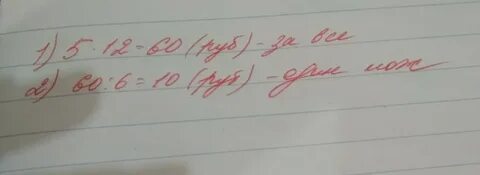 1) 5·12=60 (руб)-за все
2) 60:6=10 (руб)-один нож